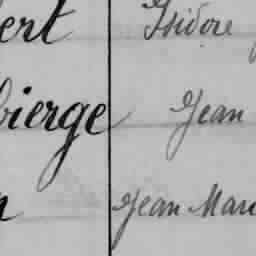 ert Isidore
bierge Jean
n Jean Marie